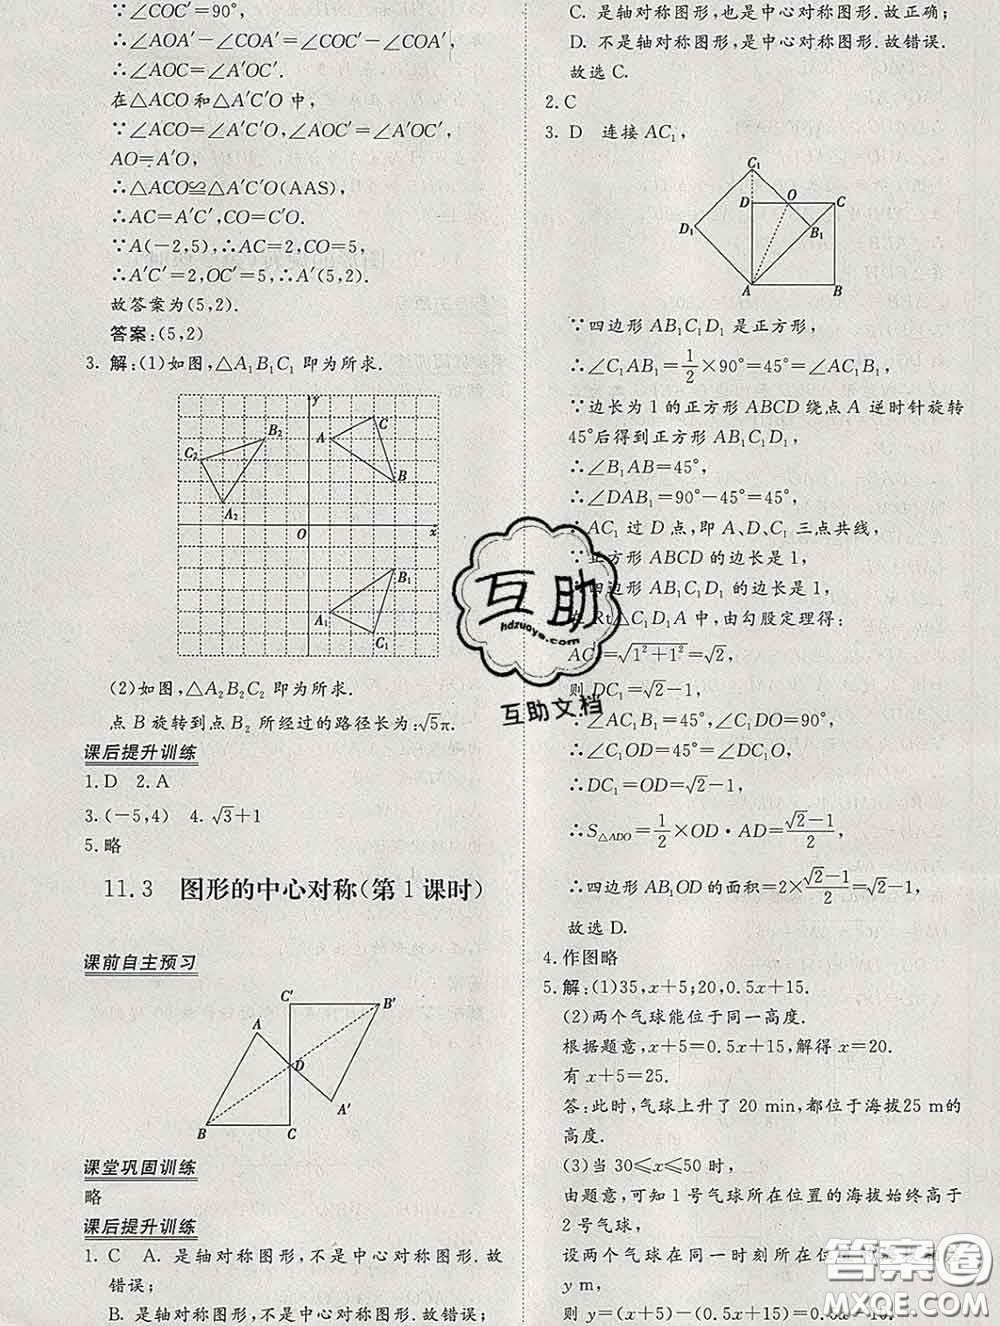 ∵∠COC′=90°,
∴∠AOA′-∠COA′=∠COC′-∠COA′,
∴∠AOC=∠A′OC′.
在△ACO和△A′C′O中,
∵∠ACO=∠A′C′O,∠AOC=∠A′OC′,
AO=A′O,
∴△ACO≌△A′C′O(AAS),
∴AC=A′C′,CO=C′O.
∵A(-2,5),∴AC=2,CO=5,
∴A′C′=2,OC′=5,∴A′(5,2).
故答案为(5,2).
答案:(5,2)
3. 解:(1)如图,△A₁B₁C₁ 即为所求.
y
C
B₂
A
C₂
B
A₂
O
x
B₁
A₁
C₁
(2)如图,△A₂B₂C₂ 即为所求.
点 B 旋转到点 B₂ 所经过的路径长为:√5π.
课后提升训练
1. D 2. A
3. (-5,4) 4. √3+1
5. 略
11.3 图形的中心对称(第 1 课时)
课前自主预习
C′
B′
A
D
A′
B
C
课堂巩固训练
略
课后提升训练
1. C A. 是轴对称图形,不是中心对称图形.故
错误;
B. 是轴对称图形,不是中心对称图形.故错误;
C. 是轴对称图形,也是中心对称图形.故正确;
D. 不是轴对称图形,是中心对称图形.故错误.
故选 C.
2. C
3. D 连接 AC₁,
C₁
D
O
C
D₁
B₁
A
B
∵四边形 AB₁C₁D₁ 是正方形,
∴∠C₁AB₁=1/2×90°=45°=∠AC₁B₁,
∵边长为 1 的正方形 ABCD 绕点 A 逆时针旋转
45°后得到正方形 AB₁C₁D₁,
∴∠B₁AB=45°,
∴∠DAB₁=90°-45°=45°,
∴AC₁ 过 D 点,即 A、D、C₁ 三点共线,
∵正方形 ABCD 的边长是 1,
四边形 AB₁C₁D₁ 的边长是 1,
Rt△C₁D₁A 中,由勾股定理得:
AC₁=√(1²+1²)=√2,
则 DC₁=√2-1,
∵∠AC₁B₁=45°,∠C₁DO=90°,
∴∠C₁OD=45°=∠DC₁O,
∴DC₁=OD=√2-1,
∴S△ADO=1/2×OD·AD=(√2-1)/2,
∴四边形 AB₁OD 的面积=2×(√2-1)/2=√2-1,
故选 D.
4. 作图略
5. 解:(1)35,x+5;20,0.5x+15.
(2)两个气球能位于同一高度.
根据题意,x+5=0.5x+15,解得 x=20.
有 x+5=25.
答:此时,气球上升了 20 min,都位于海拔25 m的
高度.
(3)当 30≤x≤50 时,
由题意,可知 1 号气球所在位置的海拔始终高于
2 号气球,
设两个气球在同一时刻所在位
y m,
则 y=(x+5)-(0.5x+15)=0.5x-10.
互助
hdzuoye.com
互助文档
答案圈
MXQE.COM